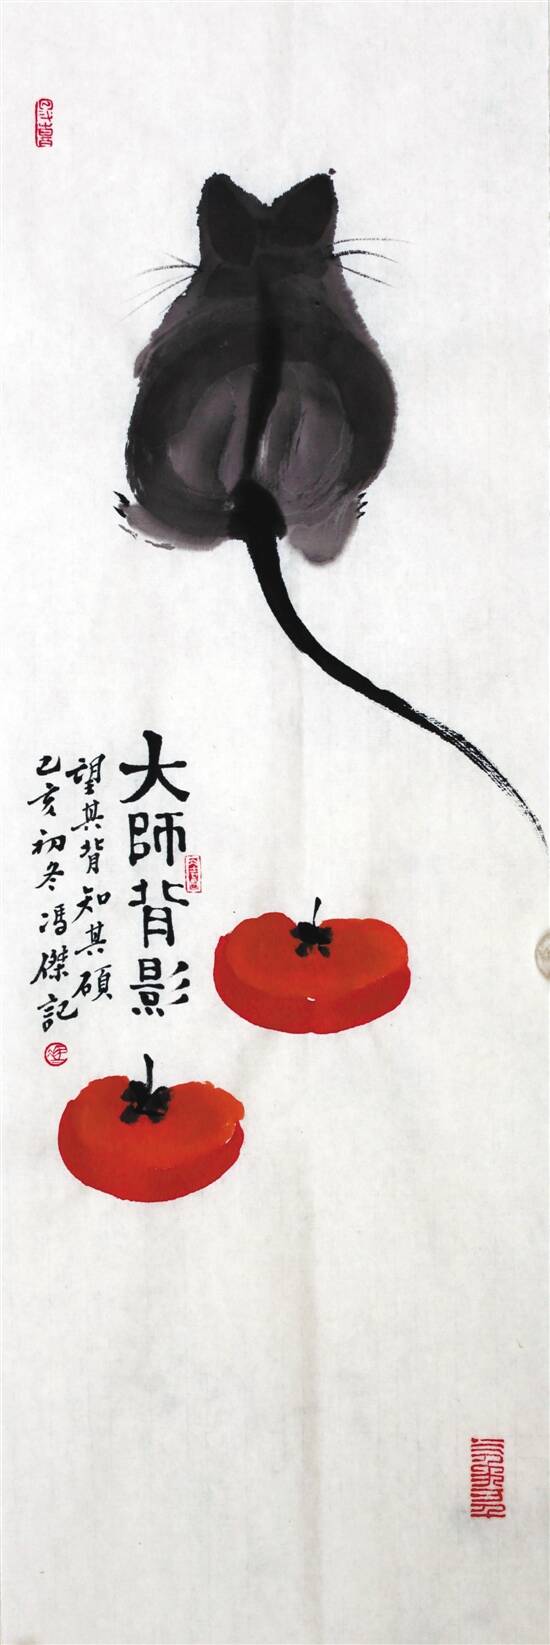 大師背影
望其背知其碩
乙亥初冬馮傑記